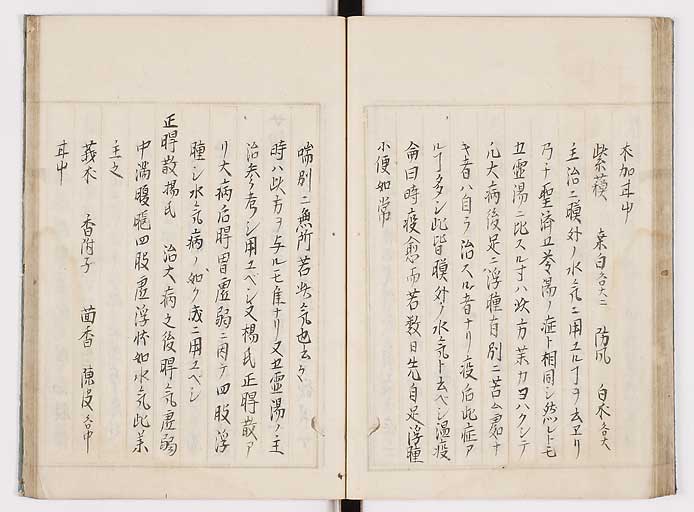 木加耳中
紫蘇 桑白各大二 防風 白朮各大
主治ニ膜外ノ水気ニ用ユルヿヲ云ヱリ
乃チ聖済五苓湯ノ症ト相同シ然レトモ
五霊湯ニ比スルヿハ此方薬力ヨハクシテ
凡大病後足ニ浮腫有別ニ苦ム処ナ
キ者ハ自ラ治スル者ナリ疫后此症ア
ルヿ多シ此皆膜外ノ水気ト云ベシ温疫
論曰時疫愈而若数日先自足浮腫
小便如常
喘別ニ無所苦此気也云々
時ハ此方ヲ与ルモ隹ナリ又五霊湯ノ主
治参考シ用ユベシ又楊氏正脾散ア
リ大病后脾胃虚弱ニ内テ四肢浮
腫シ水気病ノ如ク成ニ用ユベシ
正脾散楊氏 治大病之後脾気虚弱
中満腹䐜四肢虚浮状如水気此薬
主之
莪朮 香附子 茴香 陳皮各中
耳中